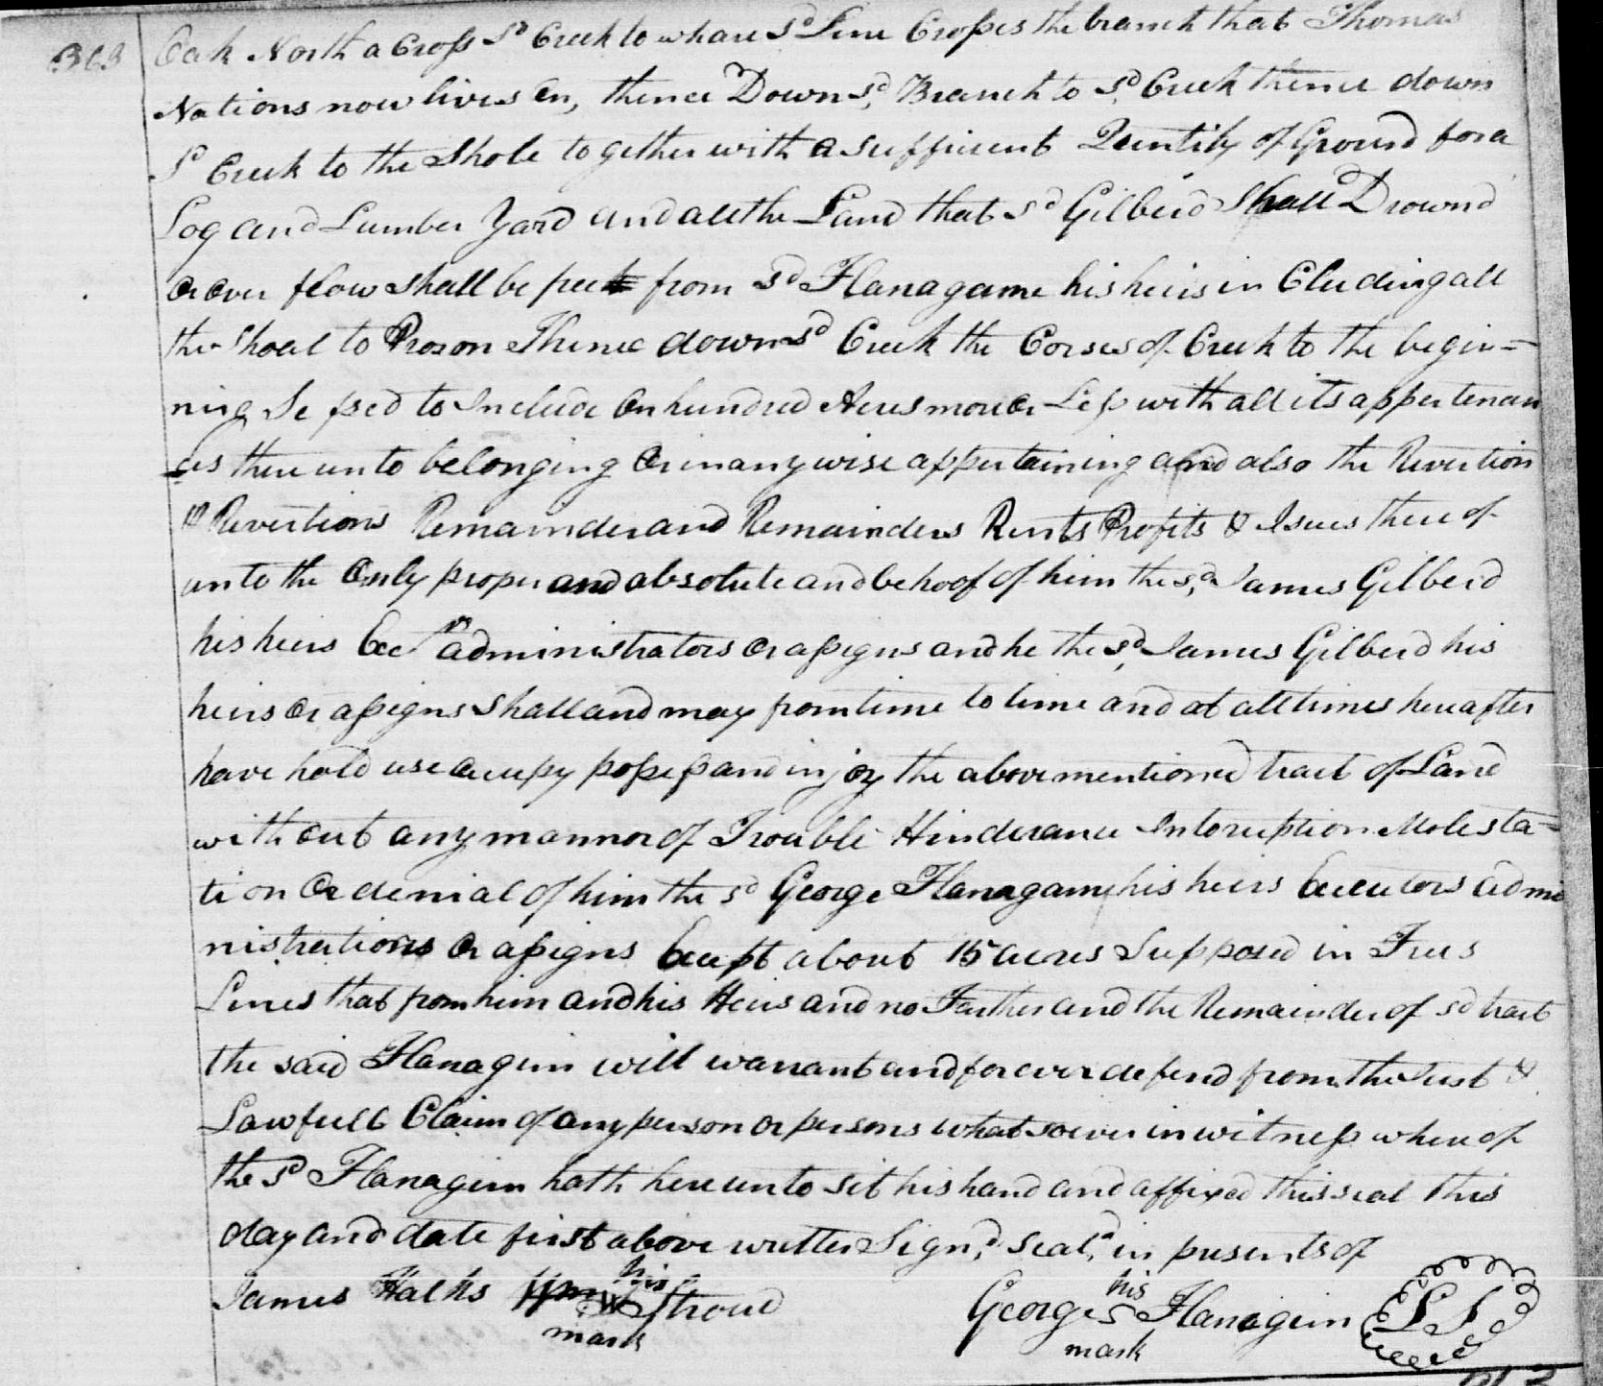 363
Oak North a Cross sd Creek to whare sd Line Crosses the branch that Thomas
Nations now lives on, thence Down sd Branch to sd Creek thence down
sd Creek to the Shole together with a sufficient Quntity of Ground for a
Log and Lumber Yard and all the Land that sd Gilberd Shall Drownd
or over flow shall be free from sd Flanagame his heirs in Cluding all
the Shoal to Thence down sd Creek the Corses of Creek to the begin=
ning Se psed to Include on hundred Acres more or Less with all its appertenan
ces there unto belonging or in any wise appertaining and also the Revertion
& Revertions Remainder and Remainders Rents Profits & Isues there of
unto the Only proper and absolute and behoof of him the sd James Gilberd
his heirs Exrs administrators or assigns and he the sd James Gilberd his
heirs or assigns shall and may from time to time and at all times hereafter
have hold use ocupy possess and injoy the above mentioned tract of Land
with out any mannor of Trouble Hinderance Interuption Molesta=
tion Or denial of him the sd George Flanagame his heirs Executors admi
nistrations Or assigns Except about 15 acres Supposed in
Lines that from him and his Heirs and no Farther and the Remainder of sd tract
the said Flanagim will warrant and forever defend from the Just &
Lawfull Claim of any person or persons what soever in witness where of
the sd Flanagim hath here unto sit his hand and affixed this seal this
day and date first above written Signd, seald, in presents of
James his Stroud George his Flanagim LS
mark mark